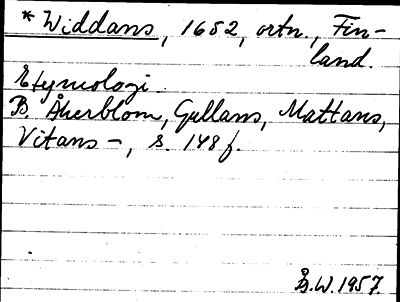 * Widdans, 1652, ortn., Fin-
land.
Etymologi.
B. Åkerblom, Gullans, Mattans,
Vitans –, s. 148 f.
Å.W. 1957.